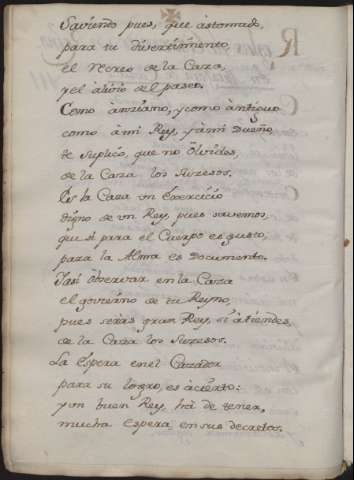 Saviendo pues, que às tomado,
para tu divertimento,
el recreo de la Caza,
y el alivio del paseo.
Como ànciano, y como àntiguo
como à mi Rey, y à mi Dueño,
te suplico, que no òlvides,
de la Caza los Suzesos.
Es la Caza un Exercicio
digno de un Rey, pues savemos,
que si para el Cuerpo es gusto,
para la Alma es Documento.
Y asi òbservar en la Caza
el govierno de tu Reyno,
pues seràs gran Rey, si àtiendes,
de la Caza los Suzesos.
La Espera en el Cazador
para su logro, es àcierto:
y un buen Rey, hà de tener,
mucha espera en sus decretos.